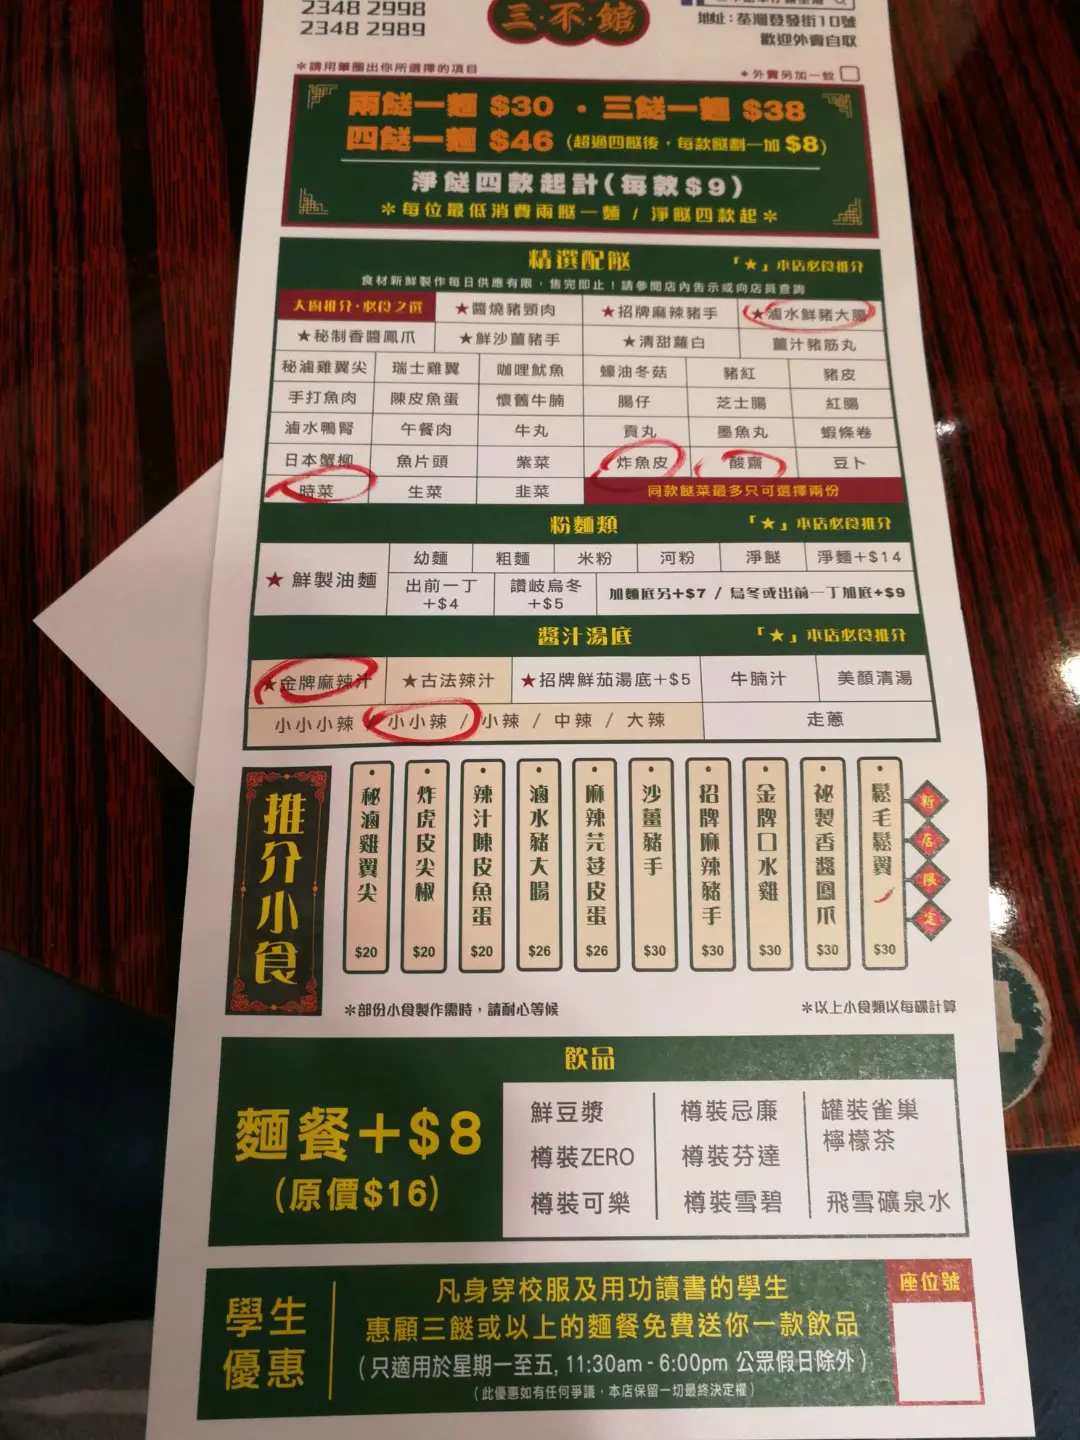 2348 2998
2348 2989
三·不·館
地址：荃灣登發街10號
歡迎外賣自取
＊請用筆圈出你所選擇的項目
＊外賣另加一蚊
兩餸一麵 $30 · 三餸一麵 $38
四餸一麵 $46 (超過四餸後，每款餸劃一加 $8)
淨餸四款起計(每款$9)
＊每位最低消費兩餸一麵 / 淨餸四款起＊
精選配餸
「★」本店必食推介
食材新鮮製作每日供應有限，售完即止！請參閱店內告示或向店員查詢
大廚推介·必食之選 ★醬燒豬頸肉 ★招牌麻辣豬手 ★滷水鮮豬大腸
★秘制香醬鳳爪 ★鮮沙薑豬手 ★清甜蘿白 薑汁豬筋丸
秘滷雞翼尖 瑞士雞翼 咖哩魷魚 蠔油冬菇 豬紅 豬皮
手打魚肉 陳皮魚蛋 懷舊牛腩 腸仔 芝士腸 紅腸
滷水鴨腎 午餐肉 牛丸 貢丸 墨魚丸 蝦條卷
日本蟹柳 魚片頭 紫菜 炸魚皮 酸齋 豆卜
時菜 生菜 韭菜 同款餸菜最多只可選擇兩份
粉麵類
「★」本店必食推介
★ 鮮製油麵
幼麵 粗麵 米粉 河粉 淨餸 淨麵+$14
出前一丁
+$4
讚岐烏冬
+$5
加麵底另+$7 / 烏冬或出前一丁加底+$9
醬汁湯底
「★」本店必食推介
★金牌麻辣汁 ★古法辣汁 ★招牌鮮茄湯底+$5 牛腩汁 美顏清湯
小小小辣 / 小小辣 / 小辣 / 中辣 / 大辣 走蔥
推介小食
秘滷雞翼尖 $20
炸虎皮尖椒 $20
辣汁陳皮魚蛋 $20
滷水豬大腸 $26
麻辣芫荽皮蛋 $26
沙薑豬手 $30
招牌麻辣豬手 $30
金牌口水雞 $30
祕製香醬鳳爪 $30
鬆毛鬆翼 $30
新店限定
＊部份小食製作需時，請耐心等候
＊以上小食類以每碟計算
飲品
麵餐+$8
(原價$16)
鮮豆漿 樽裝忌廉 罐裝雀巢
檸檬茶
樽裝ZERO 樽裝芬達
樽裝可樂 樽裝雪碧 飛雪礦泉水
學生
優惠
凡身穿校服及用功讀書的學生
惠顧三餸或以上的麵餐免費送你一款飲品
(只適用於星期一至五, 11:30am - 6:00pm 公眾假日除外)
(此優惠如有任何爭議，本店保留一切最終決定權)
座位號